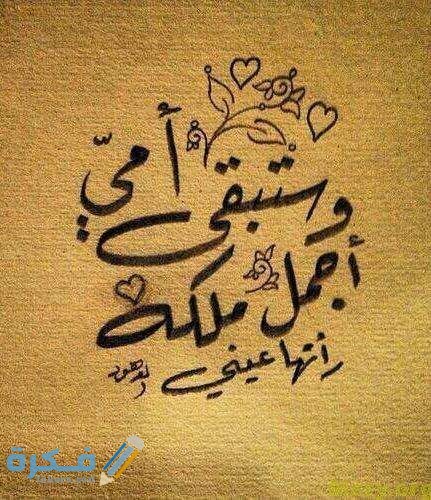 وستبقى أميّ
أجمل ملكة
رأتها عيني
فكرة